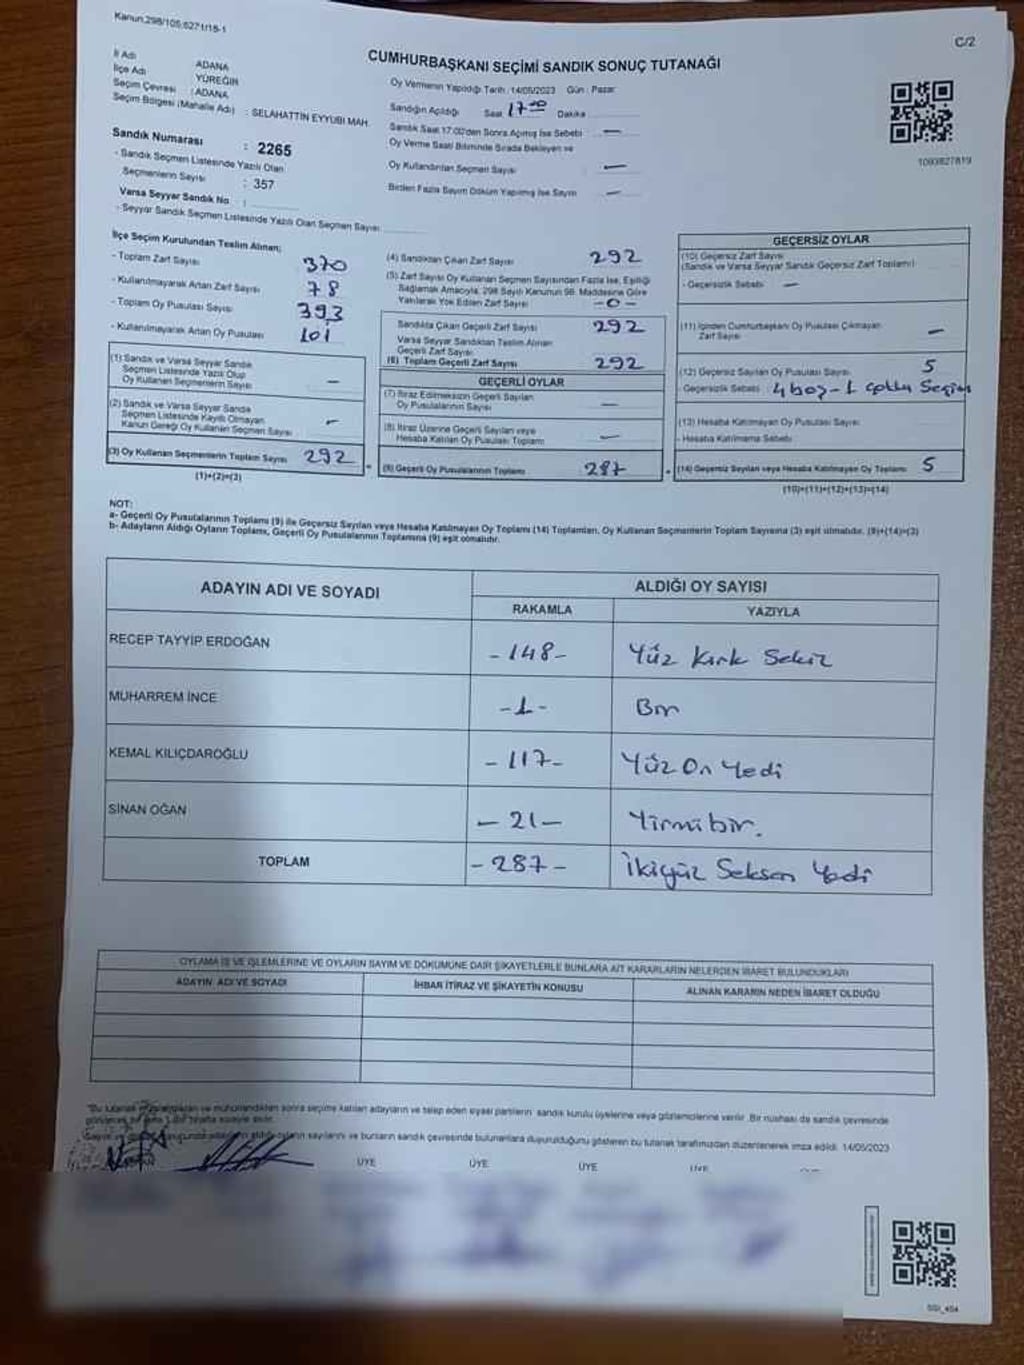 Kanun:298/105,6271/18-1
C/2
CUMHURBAŞKANI SEÇİMİ SANDIK SONUÇ TUTANAĞI
İl Adı ADANA
İlçe Adı YÜREĞİR
Seçim Çevresi : ADANA
Seçim Bölgesi (Mahalle Adı) : SELAHATTİN EYYUBİ MAH.
Sandık Numarası : 2265
- Sandık Seçmen Listesinde Yazılı Olan
Seçmenlerin Sayısı : 357
Varsa Seyyar Sandık No :
- Seyyar Sandık Seçmen Listesinde Yazılı Olan Seçmen Sayısı
Oy Vermenin Yapıldığı Tarih : 14/05/2023 Gün : Pazar
Sandığın Açıldığı Saat 17 00 Dakika
Sandık Saat 17:00'den Sonra Açılmış İse Sebebi —
Oy Verme Saati Bitiminde Sırada Bekleyen ve
Oy Kullandırılan Seçmen Sayısı —
Birden Fazla Sayım Döküm Yapılmış İse Sayısı —
1093827819
İlçe Seçim Kurulundan Teslim Alınan;
- Toplam Zarf Sayısı 370
- Kullanılmayarak Artan Zarf Sayısı 78
- Toplam Oy Pusulası Sayısı 393
- Kullanılmayarak Artan Oy Pusulası 101
(1) Sandık ve Varsa Seyyar Sandık
Seçmen Listesinde Yazılı Olup
Oy Kullanan Seçmenlerin Sayısı —
(2) Sandık ve Varsa Seyyar Sandık
Seçmen Listesinde Kayıtlı Olmayan
Kanun Gereği Oy Kullanan Seçmen Sayısı —
(3) Oy Kullanan Seçmenlerin Toplam Sayısı 292
(1)+(2)=(3)
(4) Sandıktan Çıkan Zarf Sayısı 292
(5) Zarf Sayısı Oy Kullanan Seçmen Sayısından Fazla İse, Eşitliği
Sağlamak Amacıyla, 298 Sayılı Kanunun 98. Maddesine Göre
Yakılarak Yok Edilen Zarf Sayısı -0-
Sandıkta Çıkan Geçerli Zarf Sayısı 292
Varsa Seyyar Sandıktan Teslim Alınan
Geçerli Zarf Sayısı
(6) Toplam Geçerli Zarf Sayısı 292
GEÇERLİ OYLAR
(7) İtiraz Edilmeksizin Geçerli Sayılan
Oy Pusulalarının Sayısı —
(8) İtiraz Üzerine Geçerli Sayılan veya
Hesaba Katılan Oy Pusulası Toplamı —
(9) Geçerli Oy Pusulalarının Toplamı 287
GEÇERSİZ OYLAR
(10) Geçersiz Zarf Sayısı
(Sandık ve Varsa Seyyar Sandık Geçersiz Zarf Toplamı)
- Geçersizlik Sebebi —
(11) İçinden Cumhurbaşkanı Oy Pusulası Çıkmayan
Zarf Sayısı —
(12) Geçersiz Sayılan Oy Pusulası Sayısı 5
- Geçersizlik Sebebi : 4 boş - 1 çoklu Seçim
(13) Hesaba Katılmayan Oy Pusulası Sayısı
- Hesaba Katılmama Sebebi
(14) Geçersiz Sayılan veya Hesaba Katılmayan Oy Toplamı 5
(10)+(11)+(12)+(13)=(14)
NOT:
a- Geçerli Oy Pusulalarının Toplamı (9) ile Geçersiz Sayılan veya Hesaba Katılmayan Oy Toplamı (14) Toplamları, Oy Kullanan Seçmenlerin Toplam Sayısına (3) eşit olmalıdır. (9)+(14)=(3)
b- Adayların Aldığı Oyların Toplamı, Geçerli Oy Pusulalarının Toplamına (9) eşit olmalıdır.
ADAYIN ADI VE SOYADI
ALDIĞI OY SAYISI
RAKAMLA YAZIYLA
RECEP TAYYİP ERDOĞAN -148- Yüz Kırk Sekiz
MUHARREM İNCE -1- Bir
KEMAL KILIÇDAROĞLU -117- Yüz On Yedi
SİNAN OĞAN -21- Yirmibir.
TOPLAM -287- İkiyüz Seksen Yedi
OYLAMA İŞ VE İŞLEMLERİNE VE OYLARIN SAYIM VE DÖKÜMÜNE DAİR ŞİKAYETLERLE BUNLARA AİT KARARLARIN NELERDEN İBARET BULUNDUKLARI
ADAYIN ADI VE SOYADI İHBAR İTİRAZ VE ŞİKAYETİN KONUSU ALINAN KARARIN NEDEN İBARET OLDUĞU
"Bu tutanak ve mühürlendikten sonra seçime katılan adayların ve talep eden siyasi partilerin sandık kurulu üyelerine veya gözlemcilerine verilir. Bir nüshası da sandık çevresinde
sayılarını ve bunların sandık çevresinde bulunanlara duyurulduğunu gösteren bu tutanak tarafımızdan düzenlenerek imza edildi. 14/05/2023
ÜYE ÜYE ÜYE ÜYE